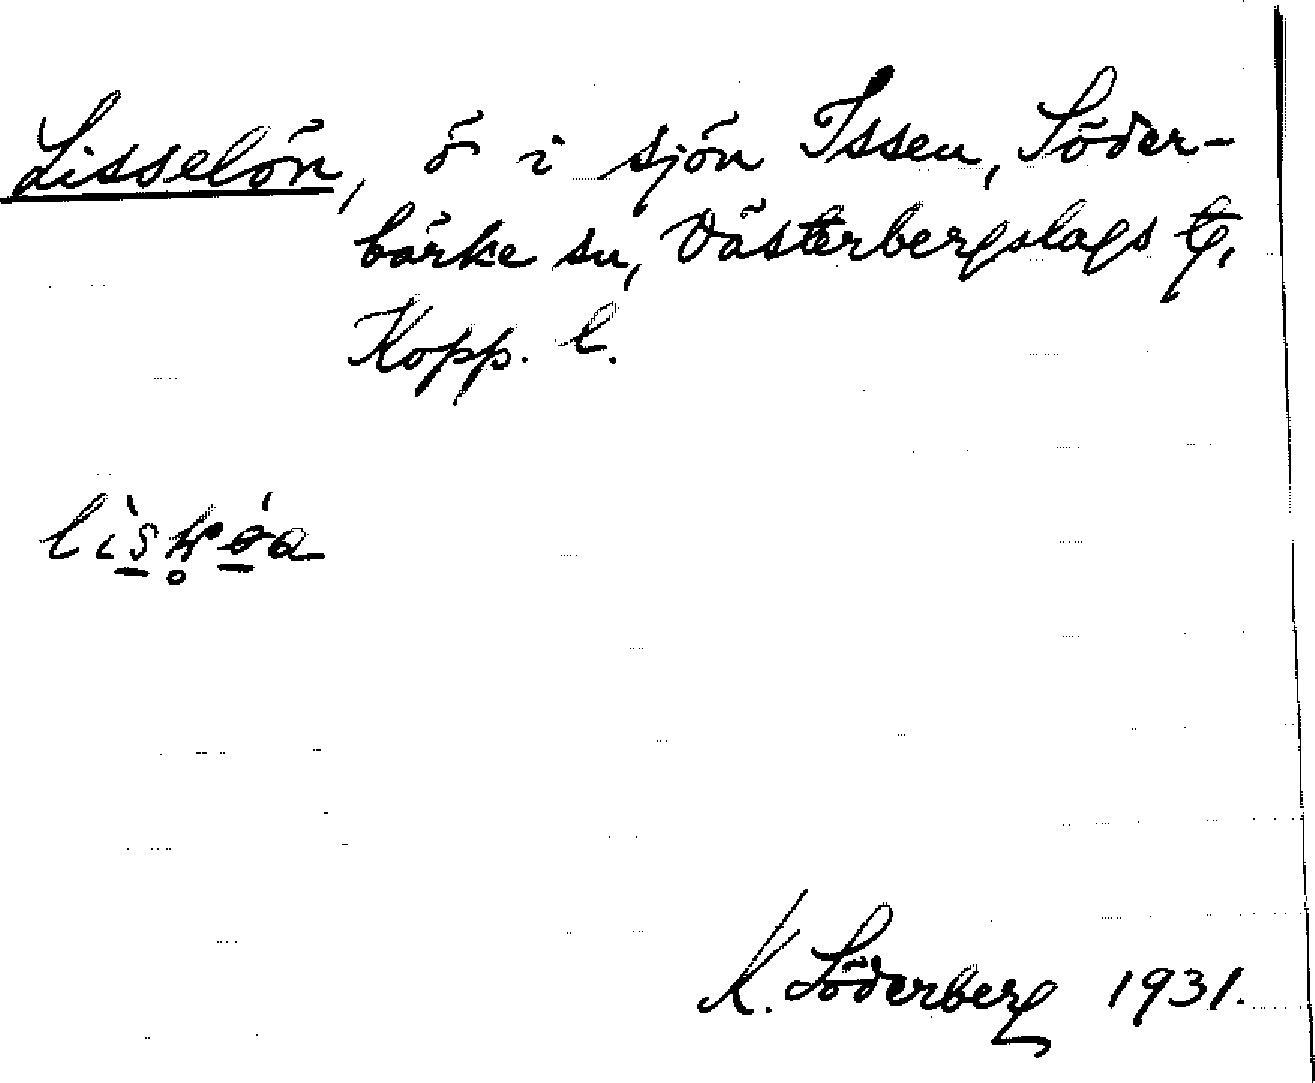 Lisselön, ö i sjön Issen, Söder-
bärke sn, Västerbergslags tg,
Kopp. l.
K. Söderberg 1931.